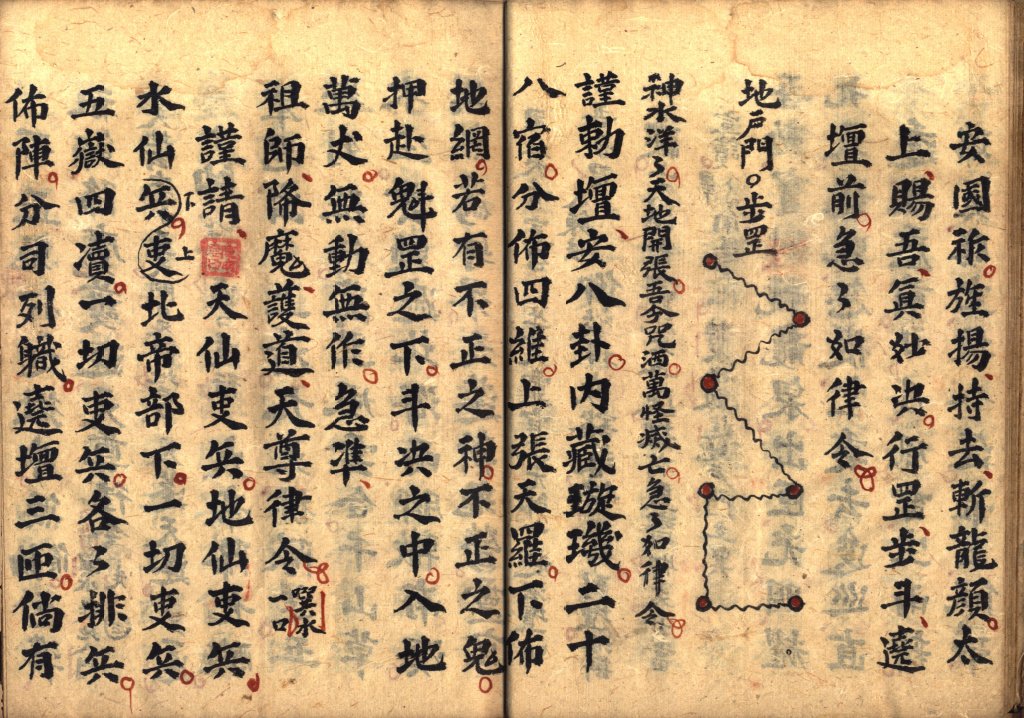 安國祚旌揚持去斬龍顔太
上賜吾真妙决行罡步斗遶
壇前急〻如律令
地戸門步罡
神水洋〻天地開張吾今咒洒萬怪滅亡急〻如律令
謹勅壇安八卦内藏璇璣二十
八宿分佈四維上張天羅下佈
地網若有不正之神不正之鬼
押赴魁罡之下斗决之中入地
萬丈無動無作急準
祖師降魔護道天尊律令 噀水一口
謹請天仙吏兵地仙吏兵
水仙兵下吏上北帝部下一切吏兵
五嶽四瀆一切吏兵各〻排兵
佈陣分司列職遶壇三匝倘有